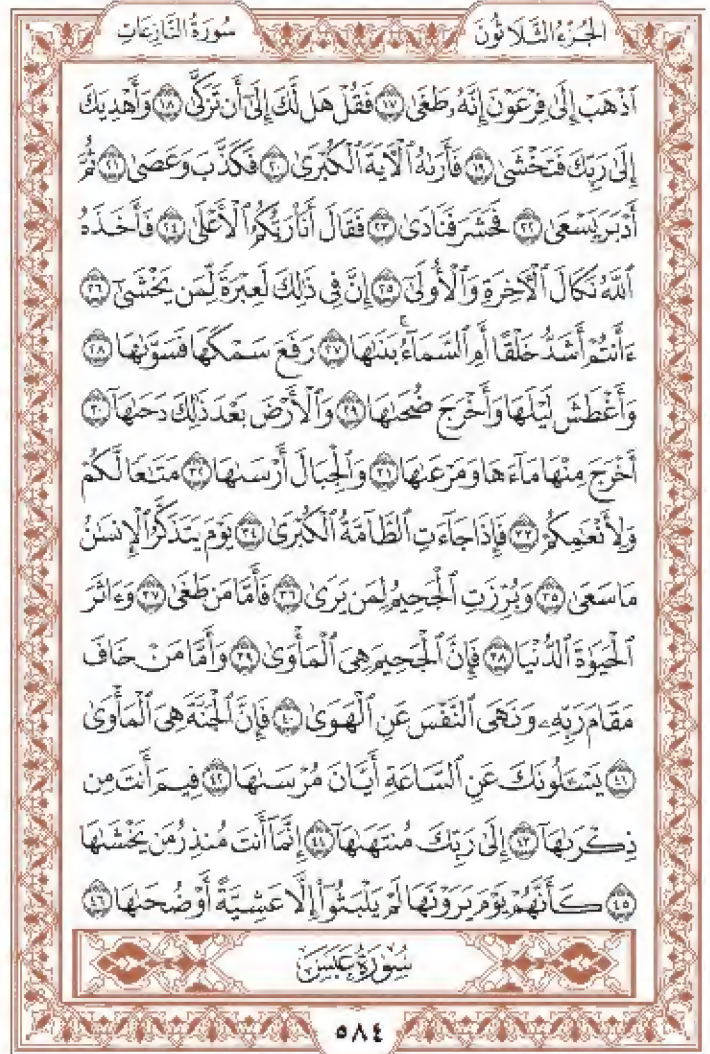 سُورَةُ النَّازِعَاتِ
الجُزْءُ الثَّلَاثُونَ
ٱذْهَبْ إِلَىٰ فِرْعَوْنَ إِنَّهُۥ طَغَىٰ ١٧ فَقُلْ هَل لَّكَ إِلَىٰٓ أَن تَزَكَّىٰ ١٨ وَأَهْدِيَكَ
إِلَىٰ رَبِّكَ فَتَخْشَىٰ ١٩ فَأَرَىٰهُ ٱلْأٓيَةَ ٱلْكُبْرَىٰ ٢٠ فَكَذَّبَ وَعَصَىٰ ٢١ ثُمَّ
أَدْبَرَ يَسْعَىٰ ٢٢ فَحَشَرَ فَنَادَىٰ ٢٣ فَقَالَ أَنَا۠ رَبُّكُمُ ٱلْأَعْلَىٰ ٢٤ فَأَخَذَهُ
ٱللَّهُ نَكَالَ ٱلْأٓخِرَةِ وَٱلْأُولَىٰٓ ٢٥ إِنَّ فِى ذَٰلِكَ لَعِبْرَةً لِّمَن يَخْشَىٰٓ ٢٦
ءَأَنتُمْ أَشَدُّ خَلْقًا أَمِ ٱلسَّمَآءُ ۚ بَنَىٰهَا ٢٧ رَفَعَ سَمْكَهَا فَسَوَّىٰهَا ٢٨
وَأَغْطَشَ لَيْلَهَا وَأَخْرَجَ ضُحَىٰهَا ٢٩ وَٱلْأَرْضَ بَعْدَ ذَٰلِكَ دَحَىٰهَآ ٣٠
أَخْرَجَ مِنْهَا مَآءَهَا وَمَرْعَىٰهَا ٣١ وَٱلْجِبَالَ أَرْسَىٰهَا ٣٢ مَتَـٰعًا لَّكُمْ
وَلِأَنْعَـٰمِكُمْ ٣٣ فَإِذَا جَآءَتِ ٱلطَّآمَّةُ ٱلْكُبْرَىٰ ٣٤ يَوْمَ يَتَذَكَّرُ ٱلْإِنسَـٰنُ
مَا سَعَىٰ ٣٥ وَبُرِّزَتِ ٱلْجَحِيمُ لِمَن يَرَىٰ ٣٦ فَأَمَّا مَن طَغَىٰ ٣٧ وَءَاثَرَ
ٱلْحَيَوٰةَ ٱلدُّنْيَا ٣٨ فَإِنَّ ٱلْجَحِيمَ هِىَ ٱلْمَأْوَىٰ ٣٩ وَأَمَّا مَنْ خَافَ
مَقَامَ رَبِّهِۦ وَنَهَى ٱلنَّفْسَ عَنِ ٱلْهَوَىٰ ٤٠ فَإِنَّ ٱلْجَنَّةَ هِىَ ٱلْمَأْوَىٰ
٤١ يَسْـَٔلُونَكَ عَنِ ٱلسَّاعَةِ أَيَّانَ مُرْسَىٰهَا ٤٢ فِيمَ أَنتَ مِن
ذِكْرَىٰهَآ ٤٣ إِلَىٰ رَبِّكَ مُنتَهَىٰهَآ ٤٤ إِنَّمَآ أَنتَ مُنذِرُ مَن يَخْشَىٰهَا
٤٥ كَأَنَّهُمْ يَوْمَ يَرَوْنَهَا لَمْ يَلْبَثُوٓا۟ إِلَّا عَشِيَّةً أَوْ ضُحَىٰهَا ٤٦
سُورَةُ عَبَسَ
٥٨٤